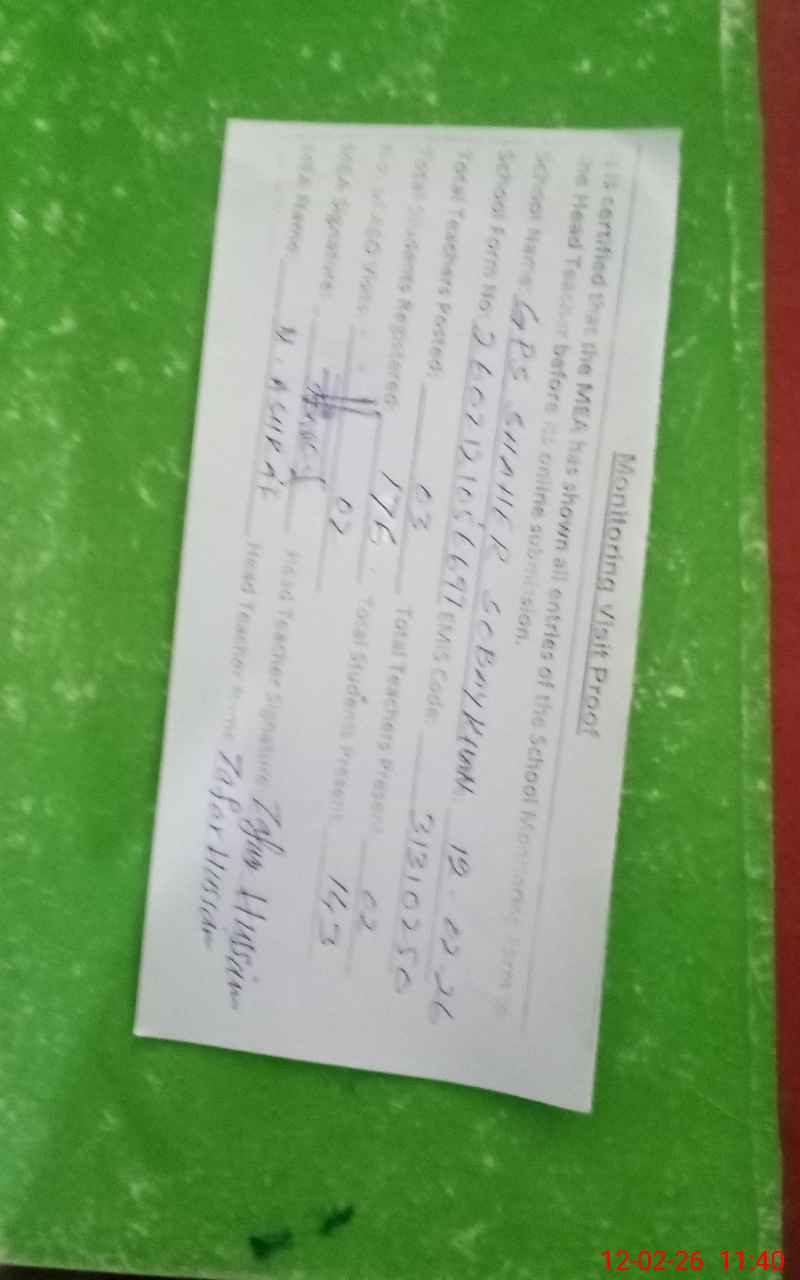 Monitoring Visit Proof
It is certified that the MEA has shown all entries of the School Monitoring Form to
the Head Teacher before its online submission.
School Name: GPS SHAHER
School Form No. EMIS Code: 31310250
Total Teachers Posted: 03 Total Teachers Present 02
Total Students Registered: 176 Total Students Present 143
Visits: 02
MEA Signature: Head Teacher Signature Zafar Hussain
MEA Name: M. ASHRAF Head Teacher Name Zafar Hussain
12-02-26 11:40